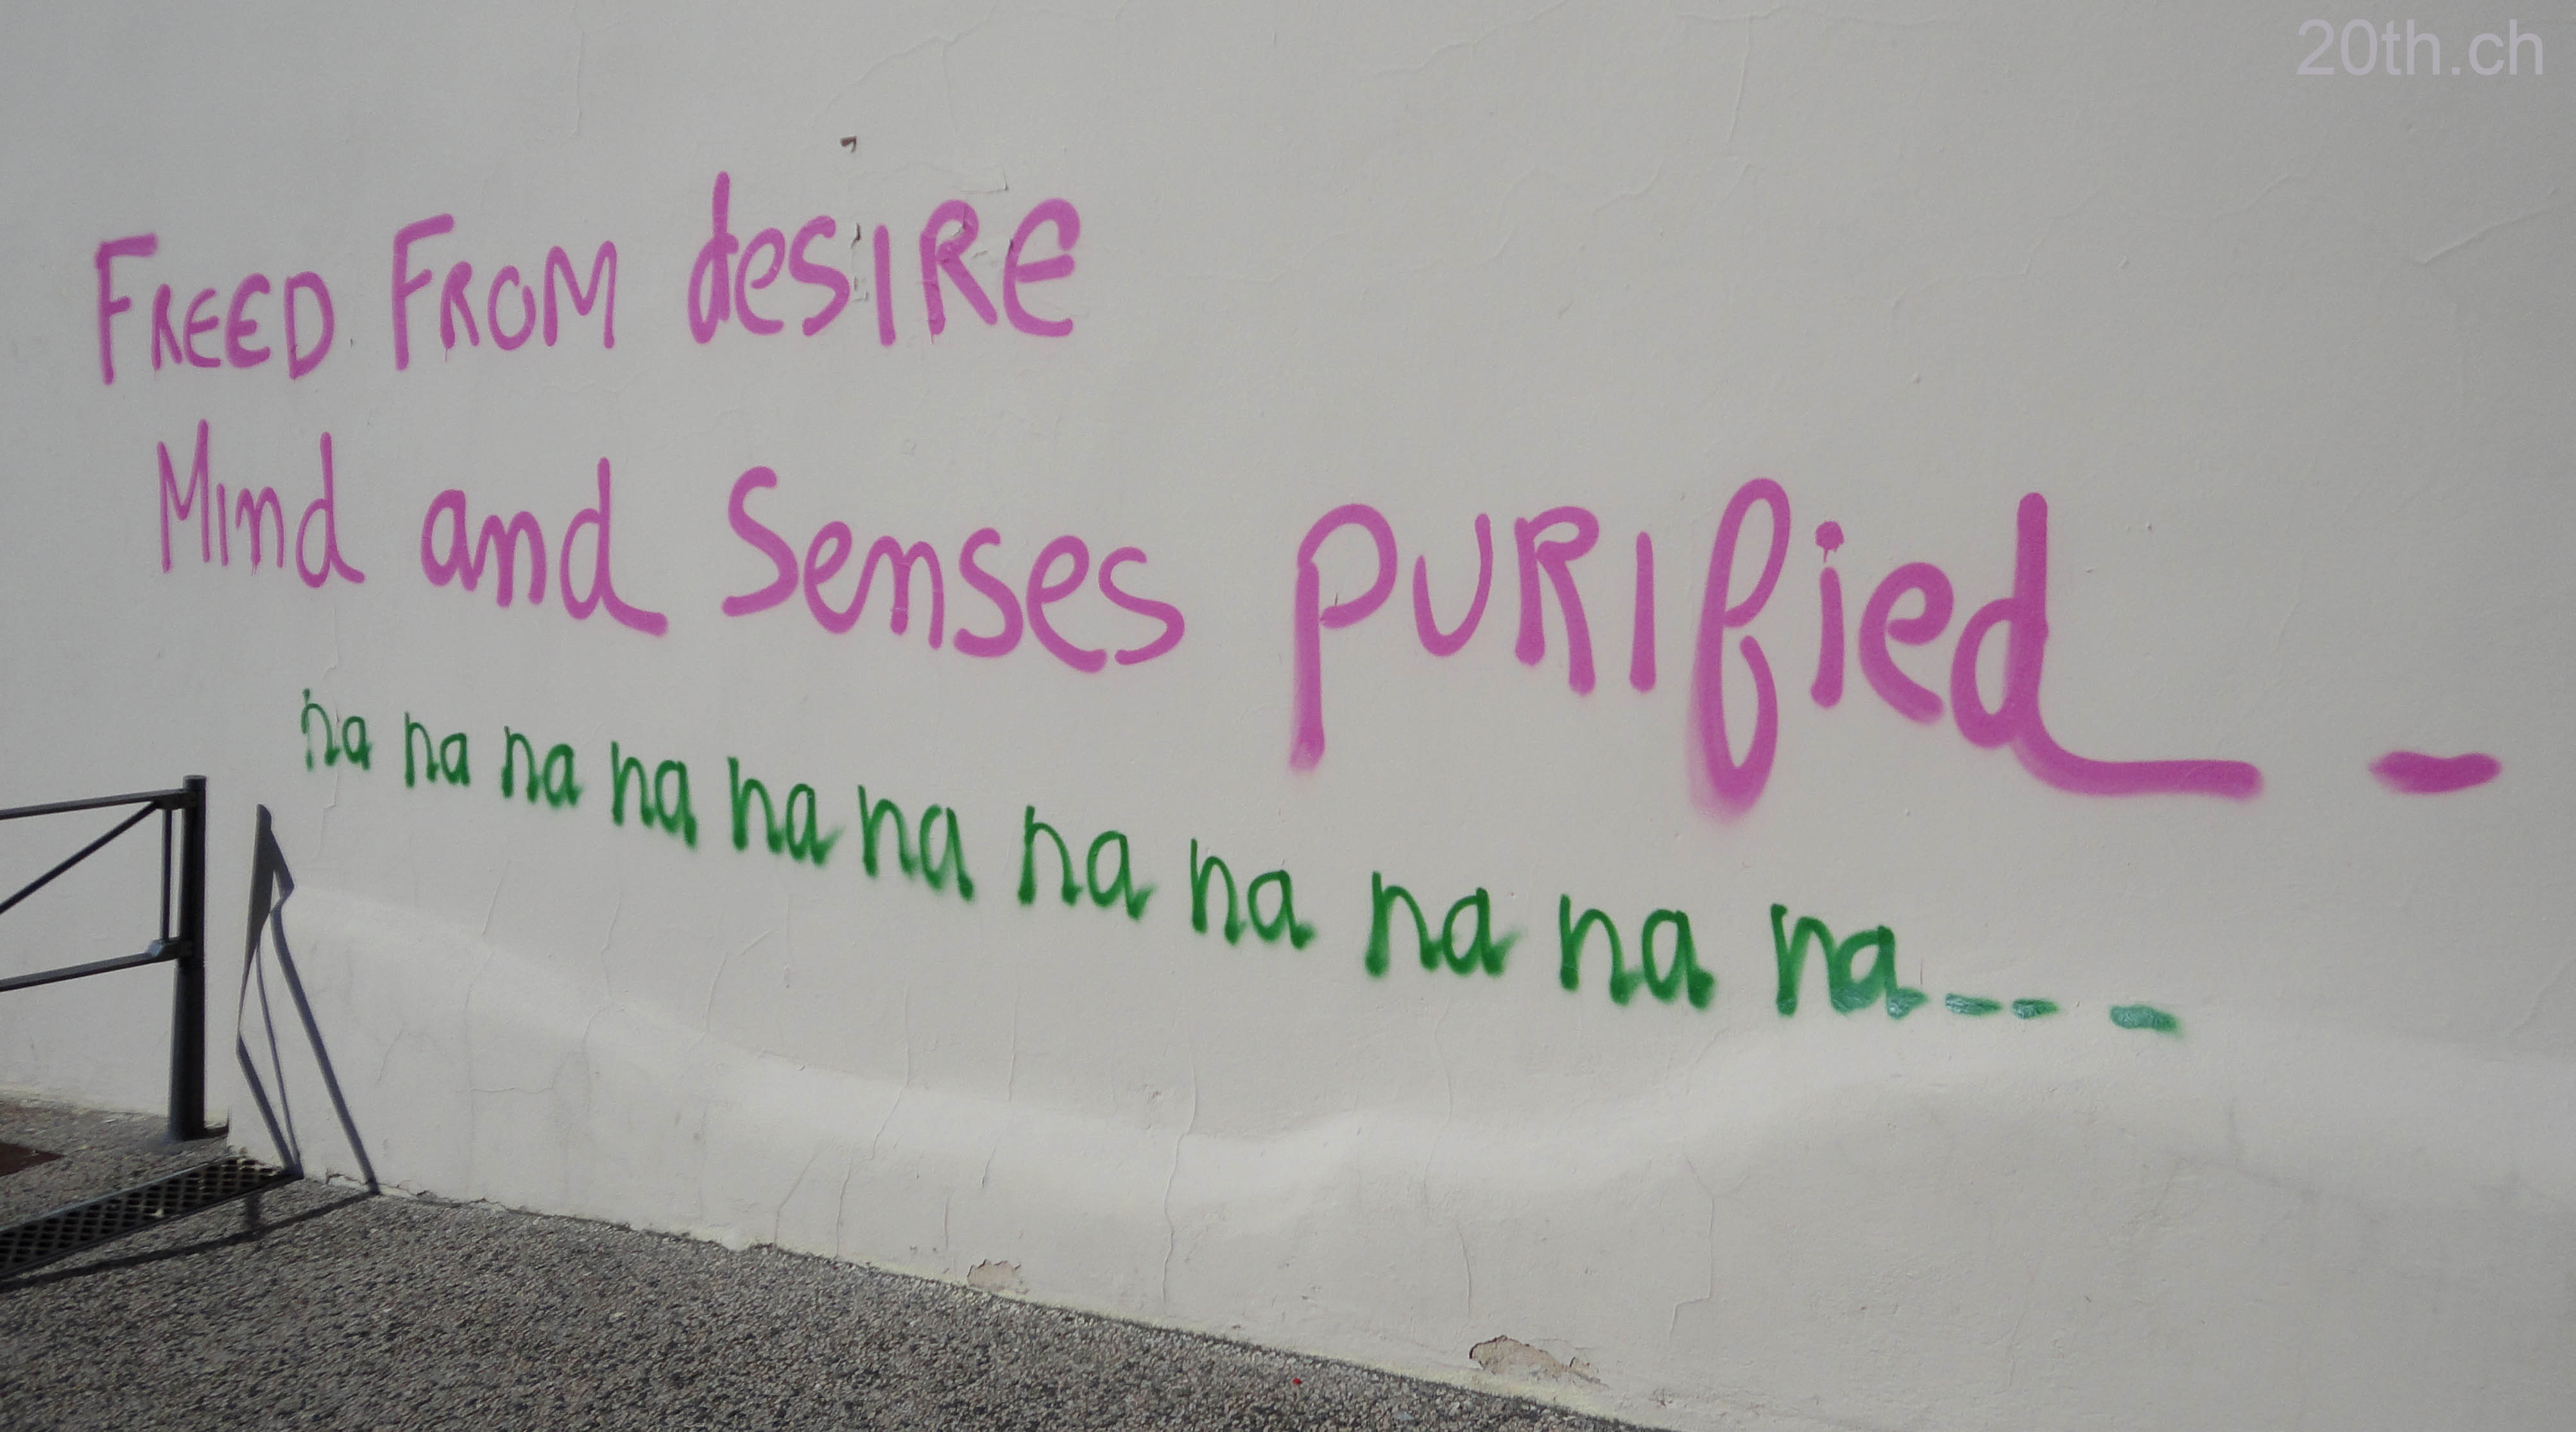 20th.ch
FREED FROM desIRE
MInd and Senses PURIfied_ -
na na na na na na na na na na na - - - -